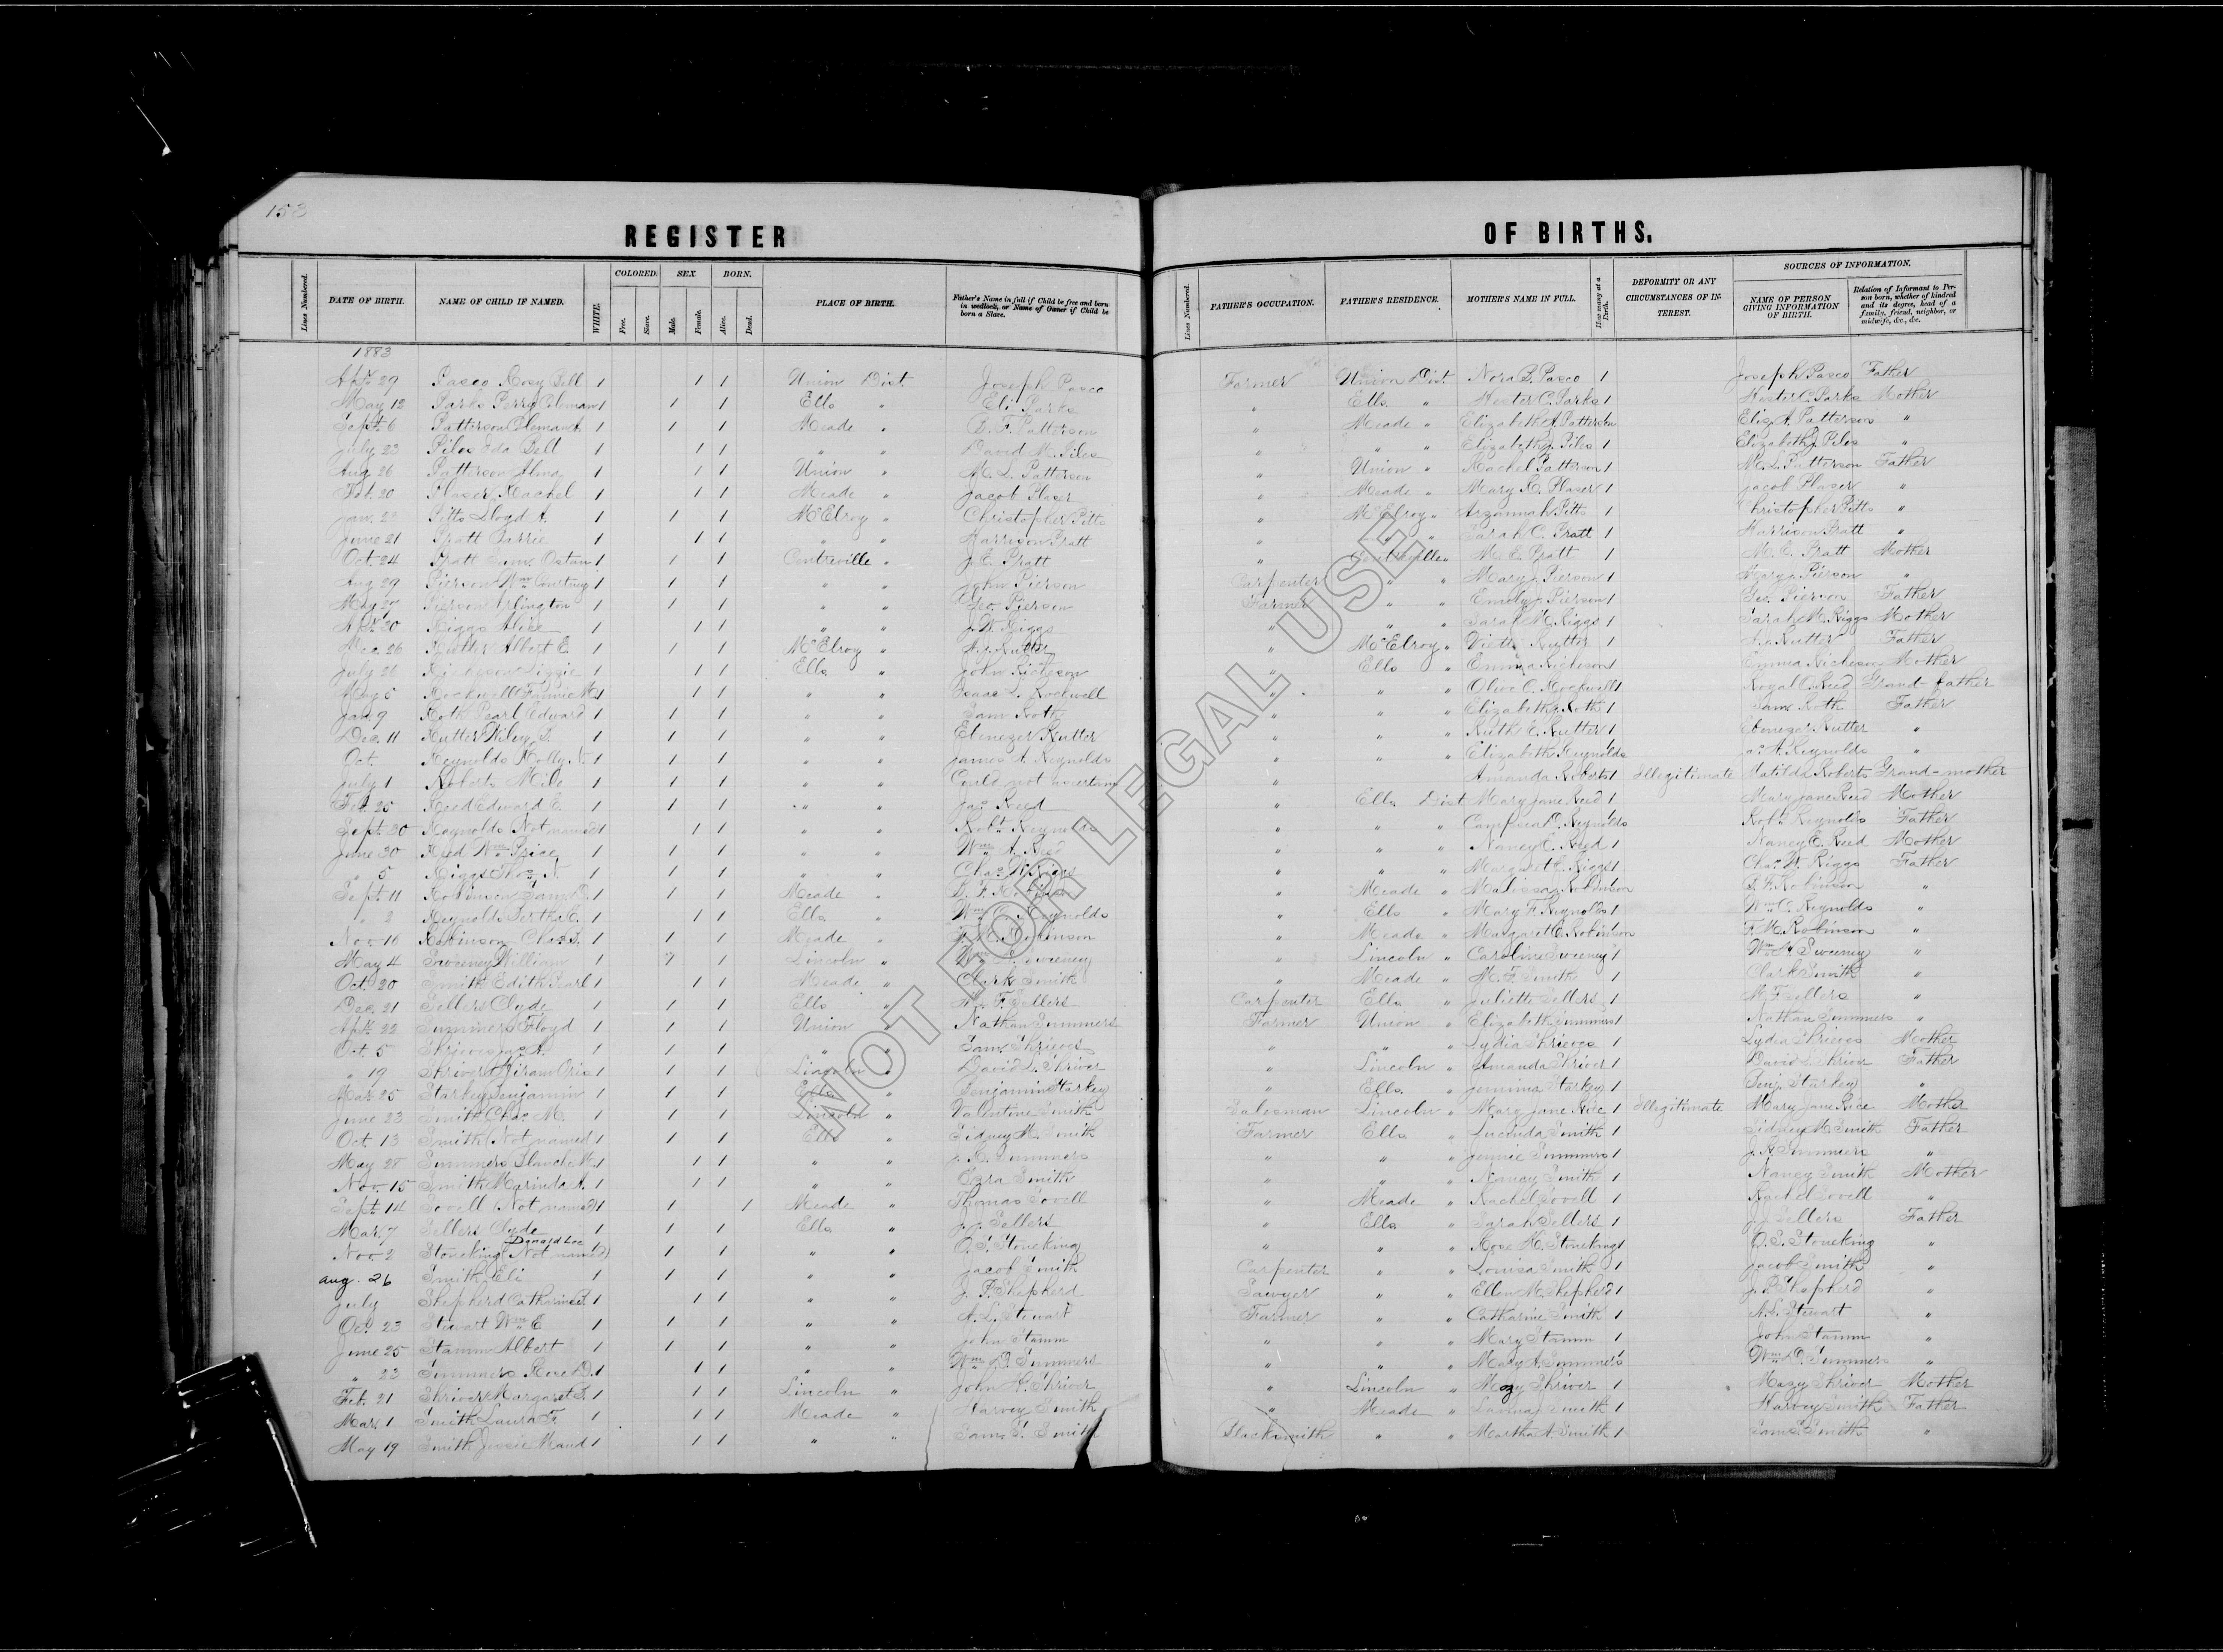 153
REGISTER OF BIRTHS.
Lines Numbered. DATE OF BIRTH. NAME OF CHILD IF NAMED. WHITE. COLORED. Free. Slave. SEX Male. Female. BORN. Alive. Dead. PLACE OF BIRTH. Father's Name in full if Child be free and born in wedlock, or Name of Owner if Child be born a Slave. Lines Numbered. FATHER'S OCCUPATION. FATHER'S RESIDENCE. MOTHER'S NAME IN FULL. How many at a Birth. DEFORMITY OR ANY CIRCUMSTANCES OF INTEREST. SOURCES OF INFORMATION. NAME OF PERSON GIVING INFORMATION OF BIRTH. Relation of Informant to Person born, whether of kindred and its degree, head of a family, friend, neighbor, or midwife, &c., &c.
1883
Apr. 29 Pasco Rosy Bell 1 1 1 Union Dist. Joseph Pasco Farmer Union Dist. Nora B. Pasco 1 Joseph Pasco Father
May 12 Parks Perry Coleman 1 1 1 Ells. " Eli Parks " Ells. " Hester C. Parks 1 Hester C. Parks Mother
Sept. 6 Patterson Coleman A. 1 1 1 Meade " D. F. Patterson " Meade " Elizabeth A. Patterson Eliz. A. Patterson "
July 23 Piles Ida Bell 1 1 1 " " David M. Piles " " " Elizabeth J. Piles 1 Elizabeth J. Piles "
Aug 26 Patterson Alma 1 1 1 Union " M. L. Patterson " Union " Rachel Patterson 1 M. L. Patterson Father
Feb. 20 Plaser Rachel 1 1 1 Meade " Jacob Plaser " Meade " Mary R. Plaser 1 Jacob Plaser "
Jan. 23 Pitts Lloyd A. 1 1 1 McElroy " Christopher Pitts " McElroy " Arzannah Pitts 1 Christopher Pitts "
June 21 Pratt 1 1 1 " " Harrison Pratt " " " Sarah C. Pratt 1 Harrison Pratt "
Oct. 24 Pratt Sam. Ostan 1 1 1 Centreville " J. E. Pratt " Centreville " M. E. Pratt 1 M. E. Pratt Mother
Aug 29 Pierson Wm 1 1 1 " " John Pierson Carpenter " " Mary J. Pierson 1 Mary J. Pierson "
May 27 Pierson Arlington 1 1 1 " " Geo. Pierson Farmer " " Emily J. Pierson 1 Geo. Pierson Father
Apr. 30 Riggs Alice 1 1 1 " " J. W. Riggs " " " Sarah M. Riggs 1 Sarah M. Riggs Mother
Dec. 26 Rutter Albert E. 1 1 1 McElroy " Rutter " McElroy " Rutter 1 Rutter Father
July 26 Richeson Lizzie 1 1 1 Ells. " John Richeson " Ells " Emma Richeson 1 Emma Richeson Mother
May 5 Rockwell Fannie M. 1 1 1 " " Isaac L. Rockwell " " " Olive C. Rockwell 1 Royal O. Reed Grand-father
Jan. 9 Roth Pearl Edward 1 1 1 " " Sam Roth " " " Elizabeth J. Roth 1 Sam. Roth Father
Dec. 11 Rutter Wiley S. 1 1 1 " " Ebenezer Rutter " " " Ruth E. Rutter 1 Ebenezer Rutter "
Oct. Reynolds Holly N. 1 1 1 " " James A. Reynolds " " " Elizabeth Reynolds Jas. A. Reynolds "
July 1 Roberts Milo 1 1 1 " " Could not ascertain " Amanda Roberts 1 Illegitimate Matilda Roberts Grand-mother
Feb. 25 Reed Edward E. 1 1 1 " " Jas Reed " Ells Dist Mary Jane Reed 1 Mary Jane Reed Mother
Sept. 30 Reynolds (Not named) 1 1 1 " " Robt. Reynolds " " " Reynolds Robt. Reynolds Father
June 30 Reed Wm. Price 1 1 1 " " Wm. A. Reed " " " Nancy E. Reed 1 Nancy E. Reed Mother
" 5 Riggs Thos. N. 1 1 1 " " Chas. W. Riggs " " " Margaret J. Riggs 1 Chas. W. Riggs Father
Sept. 11 Robinson Sam. D. 1 1 1 Meade " B. F. Robinson " Meade " Malissa Robinson B. F. Robinson "
" 2 Reynolds Berth C. 1 1 1 Ells. " Wm. C. Reynolds " Ells. " Mary F. Reynolds 1 Wm. C. Reynolds "
Nov. 16 Robinson Chas. S. 1 1 1 Meade " F. M. Robinson " Meade " Margaret C. Robinson F. M. Robinson "
May 4 Sweeney William 1 1 1 Lincoln " Wm. Sweeney " Lincoln " Caroline Sweeney 1 Wm. Sweeney "
Oct. 20 Smith Edith Pearl 1 1 1 Meade " Clark Smith " Meade " M. F. Smith 1 Clark Smith "
Dec. 21 Sellers Clyde 1 1 1 Ells. " M. F. Sellers Carpenter Ells. " Juliette Sellers 1 M. F. Sellers "
Apr. 22 Summers Floyd 1 1 1 Union " Nathan Summers Farmer Union " Elizabeth Summers 1 Nathan Summers "
Oct. 5 Shrieves Jas. A. 1 1 1 " " Sam. Shrieves " " " Lydia Shrieves 1 Lydia Shrieves Mother
" 19 Shriver Hiram Orie 1 1 1 Lincoln " David L. Shriver " Lincoln " Amanda Shriver 1 David L. Shriver Father
Mar. 25 Starkey Benjamin 1 1 1 Ells. " Benjamin Starkey " Ells. " Jemima Starkey 1 Benj. Starkey "
June 23 Smith Chas. M. 1 1 1 Lincoln " Valentine Smith Salesman Lincoln " Mary Jane Rice 1 Illegitimate Mary Jane Rice Mother
Oct. 13 Smith (Not named) 1 1 1 Ells " Sidney M. Smith Farmer Ells. " Lucinda Smith 1 Sidney M. Smith Father
May 28 Summers Blanche M. 1 1 1 " " J. R. Summers " " " Jennie Summers 1 J. R. Summers "
Nov. 15 Smith Marinda A. 1 1 1 " " Ezra Smith " " " Nancy Smith 1 Nancy Smith Mother
Sept. 14 Sovell (Not named) 1 1 1 Meade " Thomas Sovell " Meade " Rachel Sovell 1 Rachel Sovell "
Mar. 7 Sellers Clyde 1 1 1 Ells. " J. J. Sellers " Ells. " Sarah Sellers 1 J. J. Sellers Father
Donald Lee
Nov. 2 Stoneking (Not named) 1 1 1 " " O. S. Stoneking " " " Rose H. Stoneking 1 O. S. Stoneking "
Aug. 26 Smith Eli 1 1 1 " " Jacob Smith Carpenter " " Louisa Smith 1 Jacob Smith "
July Shepherd Catharine 1 1 1 " " J. P. Shepherd Sawyer " " Ellen M. Shepherd 1 J. P. Shepherd "
Oct. 23 Stewart Wm. E 1 1 1 " " A. L. Stewart Farmer " " Catharine Smith 1 A. L. Stewart "
June 25 Stamm Albert 1 1 1 " " John Stamm " " " Mary Stamm 1 John Stamm "
" 23 Summers Rose D. 1 1 1 " " Wm. D. Summers " " " Mary A. Summers Wm. D. Summers "
Feb. 21 Shriver Margaret S. 1 1 1 Lincoln " John H. Shriver " Lincoln " Mary Shriver 1 Mary Shriver Mother
Mar. 1 Smith Laura F. 1 1 1 Meade " Harvey Smith " Meade " Smith 1 Harvey Smith Father
May 19 Smith Jessie Maud 1 1 1 " " Sam. S. Smith Blacksmith " " Martha A. Smith 1 Sam. S. Smith "
NOT FOR LEGAL USE.